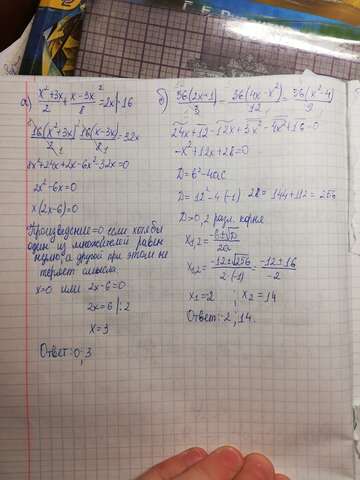 а) x²+3x/2 + x-3x²/8 = 2x |·16
16(x²+3x)/2 + 16(x-3x²)/8 = 32x
8x²+24x+2x-6x²-32x=0
2x²-6x=0
x(2x-6)=0
Произведение=0 если хотя бы
один из множителей равен
нулю, а другой при этом не
теряет смысла.
x=0 или 2x-6=0
2x=6 |:2
x=3
Ответ: 0; 3
б) 36(2x+1)/3 - 36(4x-x²)/12 = 36(x²-4)/9
24x+12-12x+3x²-4x²+16=0
-x²+12x+28=0
D=b²-4ac
D=12²-4·(-1)·28=144+112=256
D>0, 2 разл. корня
x1,2=-b±√D/2a
x1,2=-12±√256/2·(-1)=-12±16/-2
x1=-2 ; x2=14
Ответ: -2; 14.